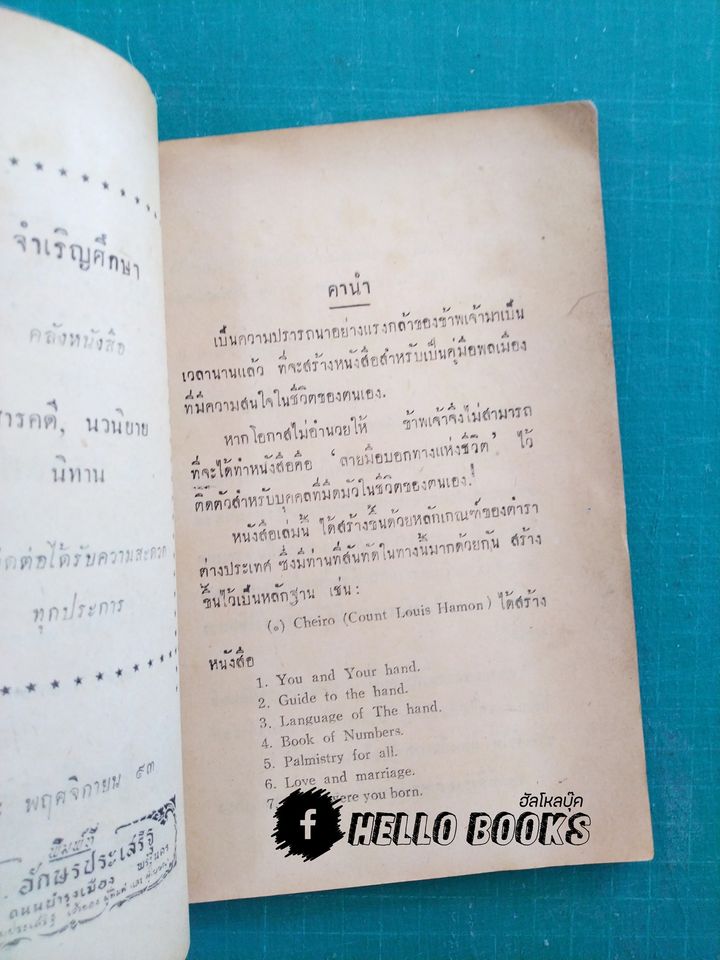 จำเริญศึกษา
คลังหนังสือ
สารคดี, นวนิยาย
นิทาน
ติดต่อได้รับความสะดวก
ทุกประการ
พฤศจิกายน ๙๓
พิมพ์ที่
อักษรประเสริฐ
ถนนบำรุงเมือง พระนคร
คานำ
เป็นความปรารถนาอย่างแรงกล้าของข้าพเจ้ามาเป็น
เวลานานแล้ว ที่จะสร้างหนังสือสำหรับเป็นคู่มือพลเมือง
ที่มีความสนใจในชีวิตของตนเอง.
หากโอกาสไม่อำนวยให้ ข้าพเจ้าจึงไม่สามารถ
ที่จะได้ทำหนังสือคือ 'ลายมือบอกทางแห่งชีวิต' ไว้
ติดตัวสำหรับบุคคลที่มืดมัวในชีวิตของตนเอง.!
หนังสือเล่มนี้ ได้สร้างขึ้นด้วยหลักเกณฑ์ของตำรา
ต่างประเทศ ซึ่งมีท่านที่สันทัดในทางนี้มากด้วยกัน สร้าง
ขึ้นไว้เป็นหลักฐาน เช่น:
(๑) Cheiro (Count Louis Hamon) ได้สร้าง
หนังสือ
1. You and Your hand.
2. Guide to the hand.
3. Language of The hand.
4. Book of Numbers.
5. Palmistry for all.
6. Love and marriage.
7 were you born.
ฮัลโหลบุ๊ค
f HELLO BOOKS